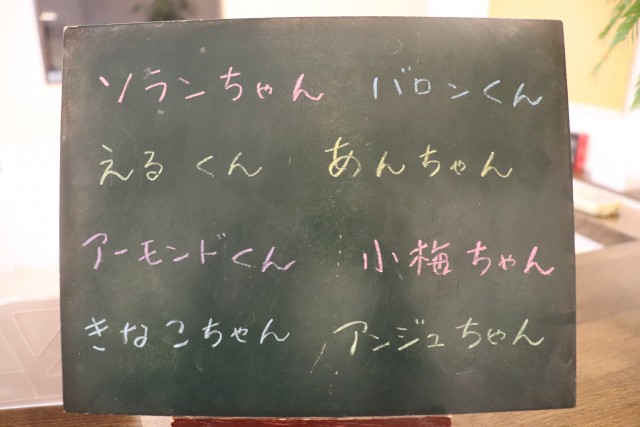 ソランちゃん バロンくん
えるくん あんちゃん
アーモンドくん 小梅ちゃん
きなこちゃん アンジュちゃん